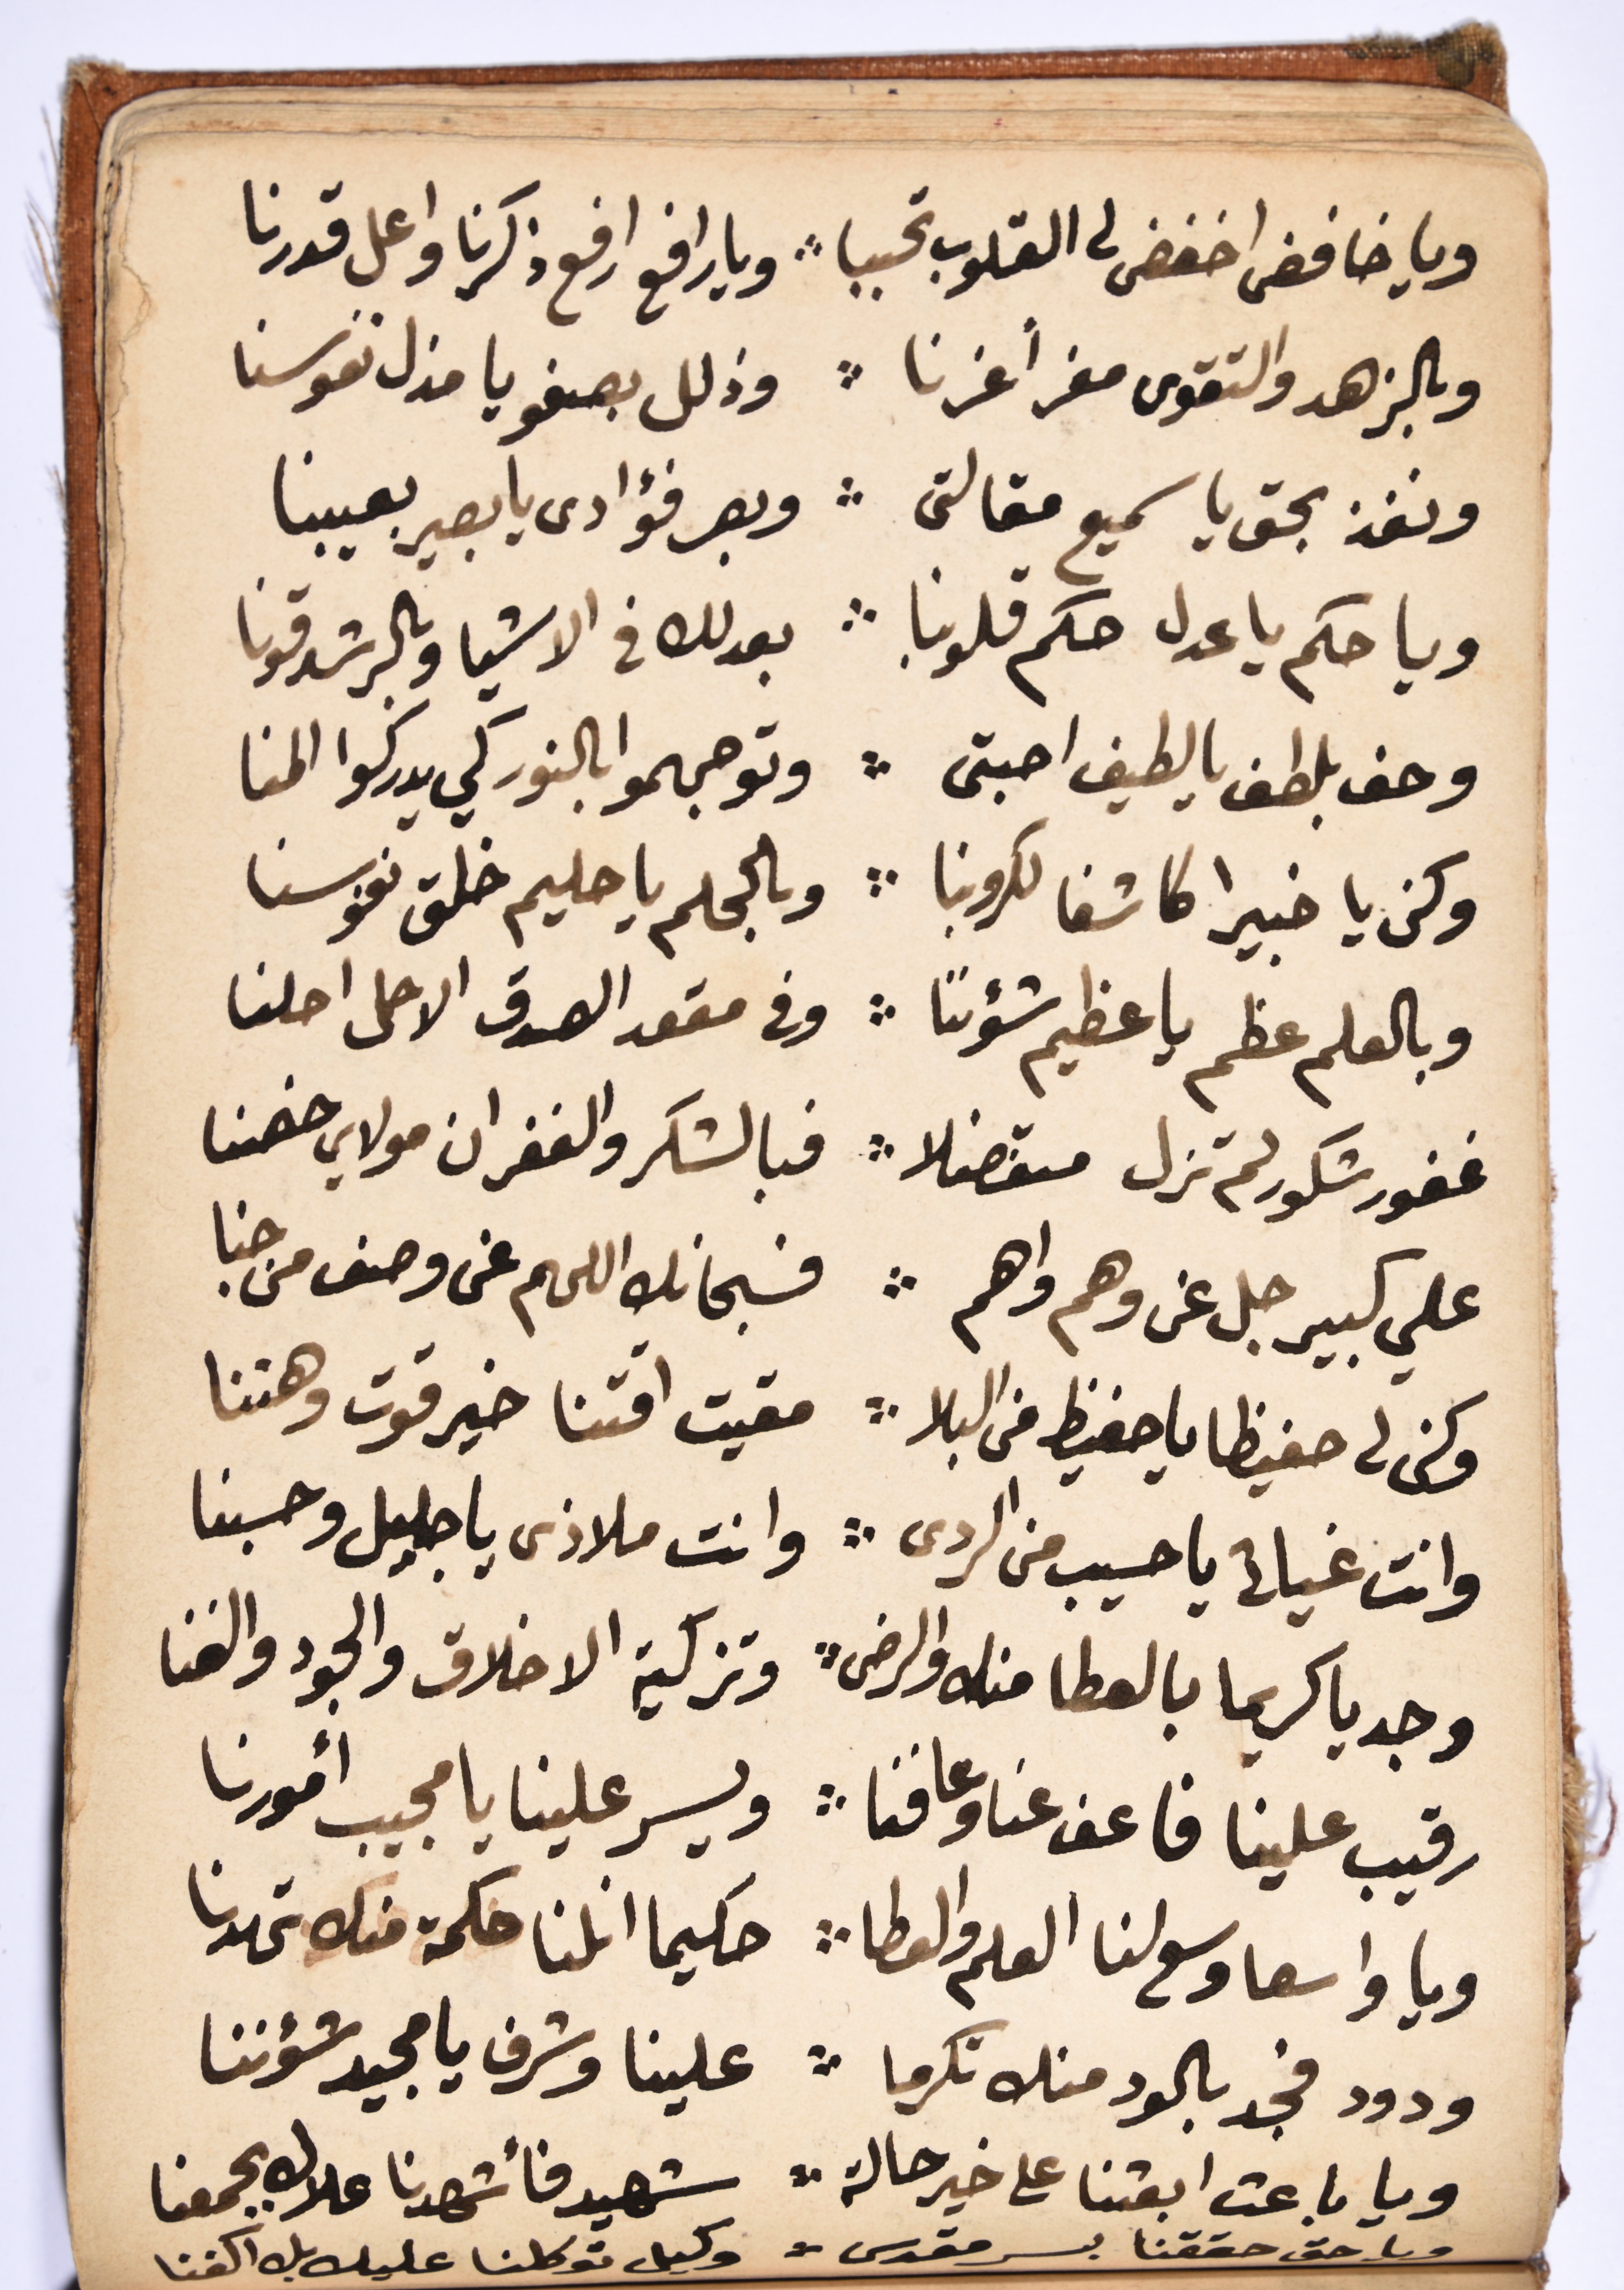 ويا خافض اخفض لي القلوب تحببا ∴ ويا رافع ارفع ذكرنا واعل قدرنا
وبالزهد والتقوى معز أعزنا ∴ وذلل بصفو يا مذل نفوسنا
ونفذ بحق يا سميع مقالتي ∴ وبصر فؤادى يا بصير بعيبنا
ويا حكم يا عدل حكم قلوبنا ∴ بعدلك في الاشيا وبالرشد قونا
وحف بلطف يا لطيف احبتى ∴ وتوجهموا بالنور كي يدركوا المنا
وكن يا خبيرا كاشفا لكروبنا ∴ وبالحلم يا حليم خلق نفوسنا
وبالعلم عظم يا عظيم شؤننا ∴ وفى مقعد الصدق الاجل احلنا
غفور شكور لم تزل متفضلا ∴ فبالشكر والغفران مولاي خصنا
علي كبير جل عن وهم واهم ∴ فسبحانك اللهم عن وصف من جنا
وكن لي حفيظا يا حفيظ من البلا ∴ مقيت اقتنا خير قوت وهننا
وانت غياثي يا حسيب من الردى ∴ وانت ملاذى يا جليل وحسبنا
وجد يا كريما بالعطا منك والرضى ∴ وتزكية الاخلاق والجود والغنا
رقيب علينا فاعف عنا وعافنا ∴ ويسر علينا يا مجيب أمورنا
ويا واسعا وسع لنا العلم والعطا ∴ حكيما انلنا حكمة منك تهدنا
ودود فجد بالود منك تكرما ∴ علينا وشرف يا مجيد شؤننا
ويا باعث ابعثنا على خير حالة ∴ شهيد فأشهدنا علاك بجمعنا
ويا حق حققنا بسر مقدس ∴ وكيل توكلنا عليك بك اكفنا